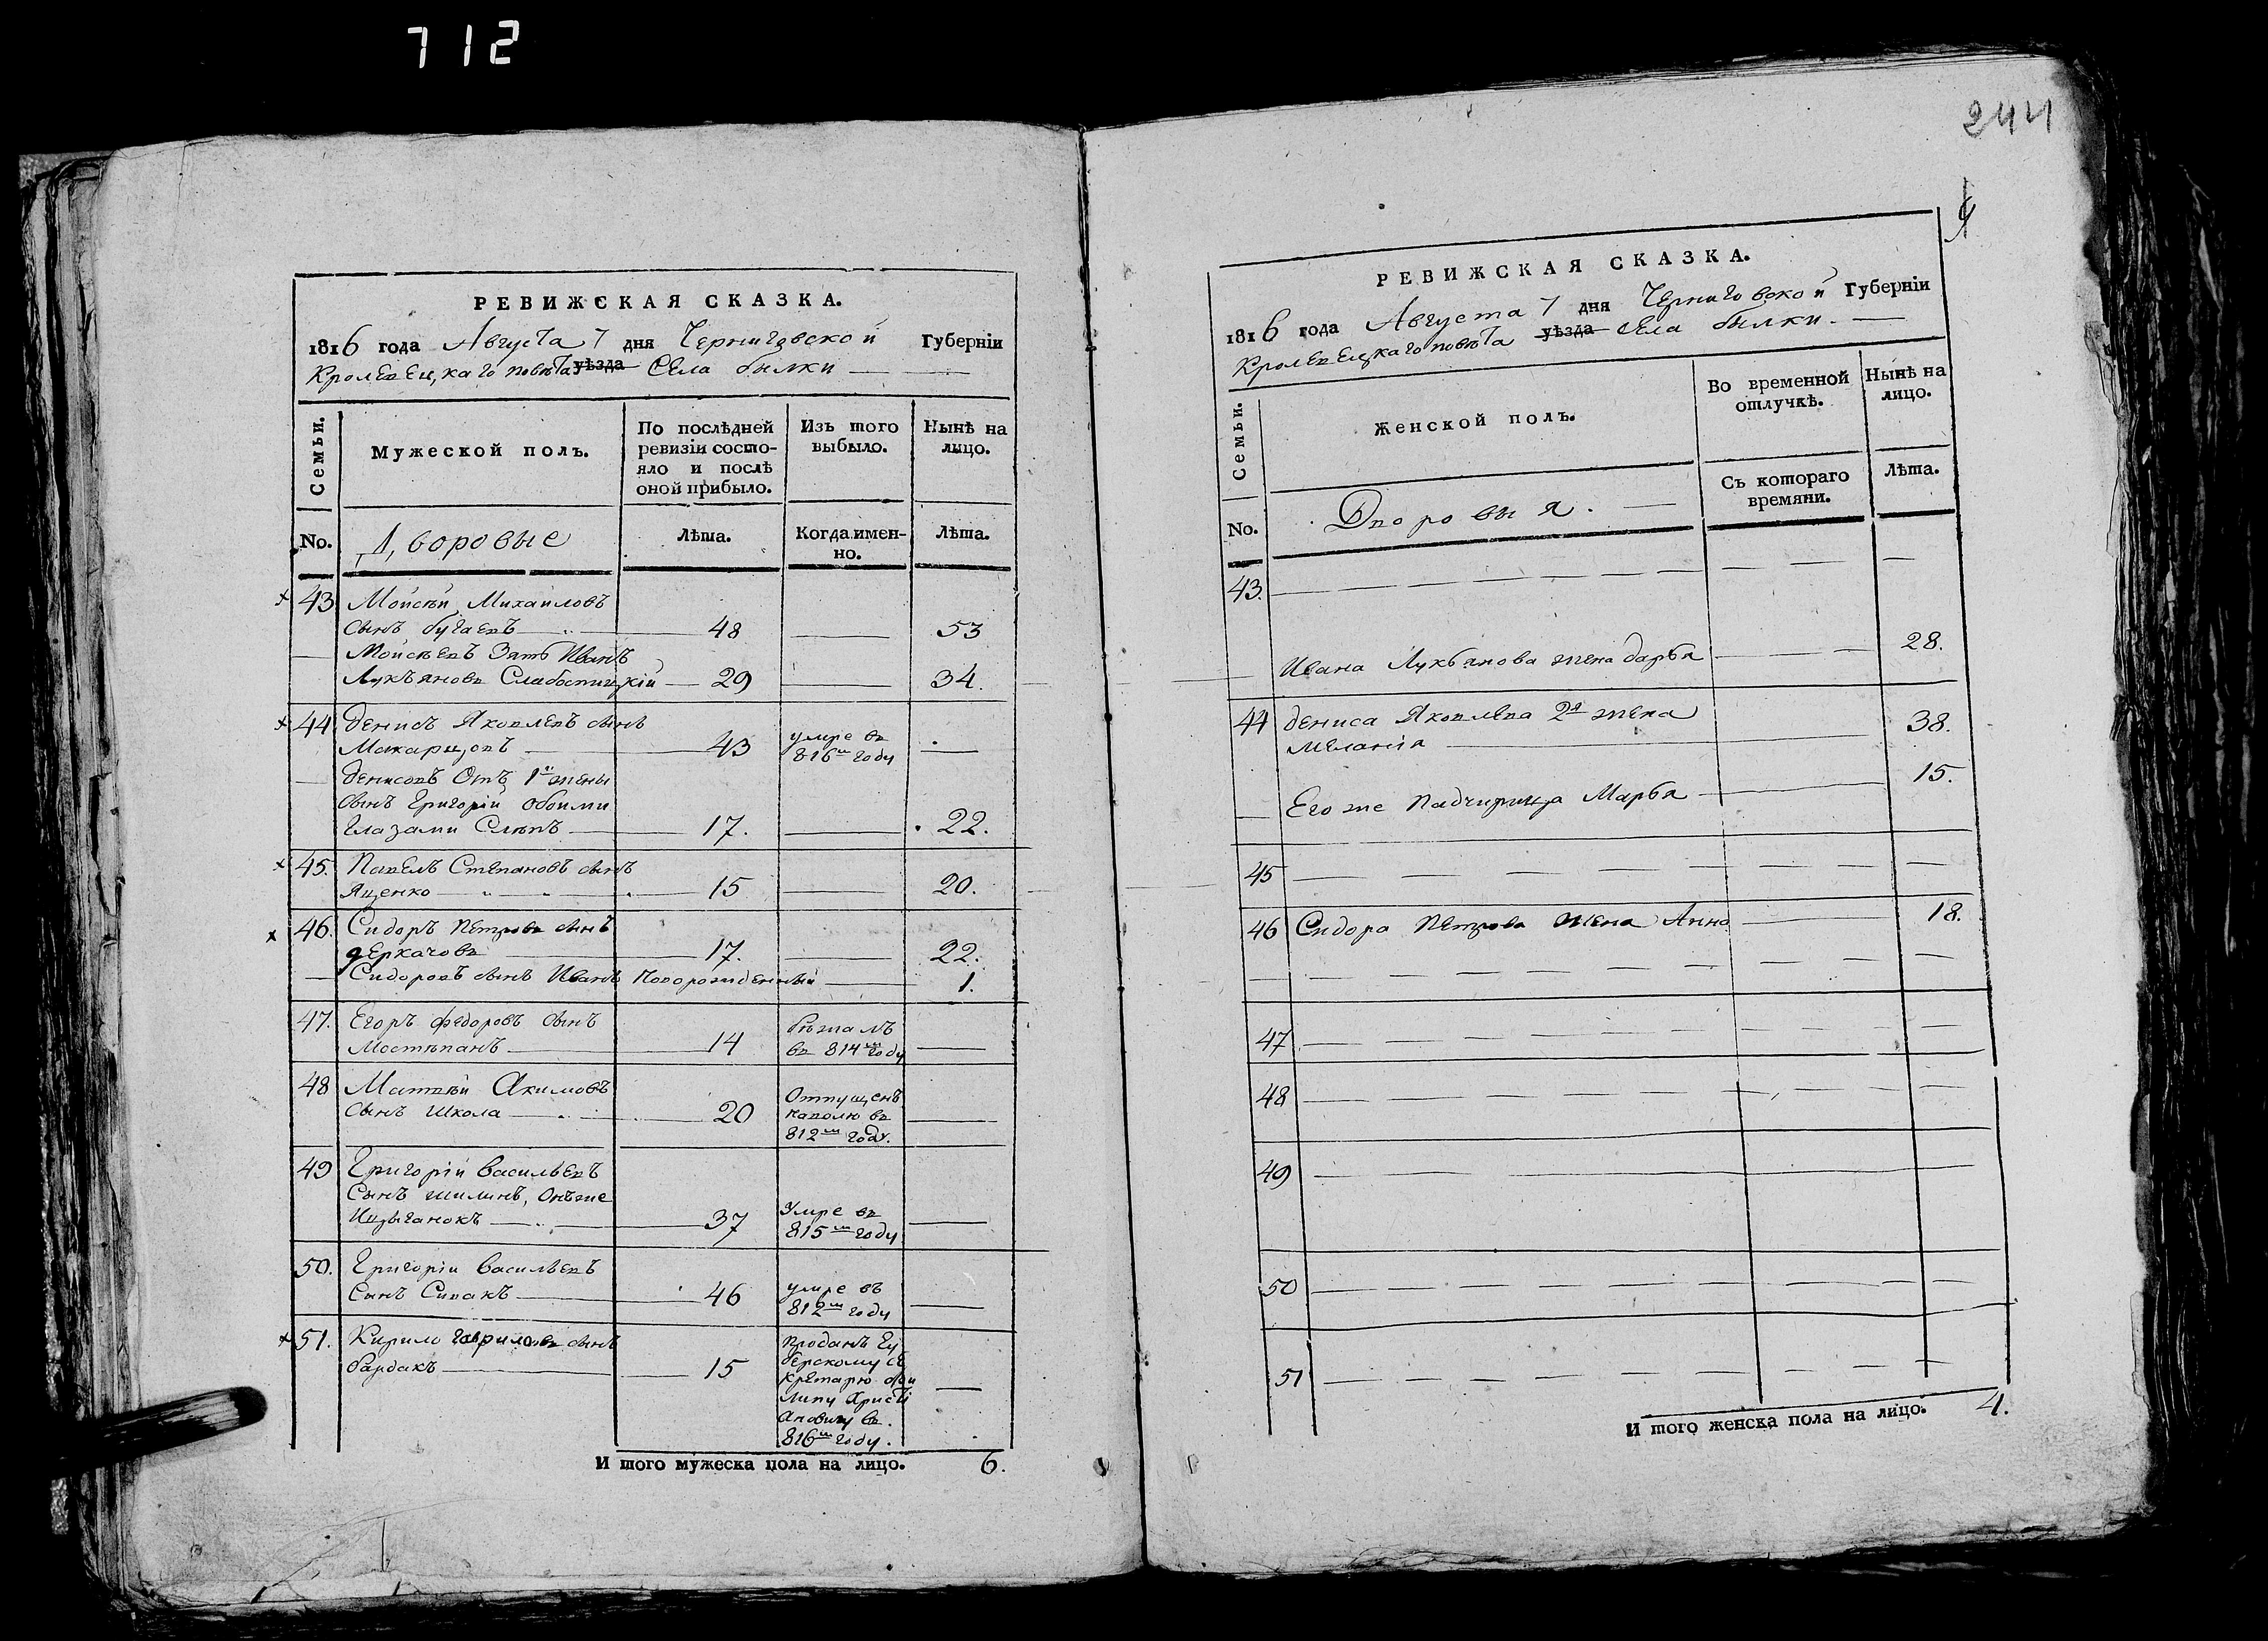 712
244
РЕВИЖСКАЯ СКАЗКА.
1816 года Августа 7 дня Черниговской Губерніи
Кролевецкаго повѣта уѣзда Села былки
Семьи.
Мужеской полъ.
По послѣдней ревизіи состо-
яло и послѣ
оной прибыло.
Изъ того выбыло.
Нынѣ на лицо.
No.
Дворовые
Лѣта.
Когда имен-
но.
Лѣта.
43 Мойсѣй Михайловъ
сынъ бугаевъ 48 53
Мойсѣевъ Зять Иванъ
Лукъяновъ Слабостицкій 29 34.
44 денисъ Яковлевъ сынъ
Макарцовъ 43 умре въ
816м году
денисовъ Отъ 1й жены
сынъ Григорій обоими
глазами Слѣпъ 17. 22.
45. Павелъ Степановъ сынъ
Яценко 15 20.
46. Сидоръ Петровъ сынъ
деркачовъ 17. 22.
Сидоровъ сынъ Иванъ Новорожденный 1.
47. Егоръ федоровъ сынъ
Мостѣпанъ 14 бѣжалъ
въ 814м году
48 Матвѣй Акимовъ
сынъ Школа 20 Отпущенъ
наволю въ
812м году.
49 Григорій васильевъ
Сынъ жилинъ, Онъже
Ицыганокъ 37 Умре въ
815м году
50. Григорій васильевъ
Сынъ Сивакъ 46 умре въ
812м году
51. Кирило гавриловъ сынъ
бардакъ 15 Проданъ Гу
берскому се
кретарю фи
липу Христі
ановичу въ
816м году.
И того мужеска пола на лицо. 6.
РЕВИЖСКАЯ СКАЗКА.
1816 года Августа 7 дня Черниговской Губерніи
Кролевецкаго повѣта уѣзда Села былки.
Семьи.
Женской полъ.
Во временной отлучкѣ.
Нынѣ на лицо.
No.
Дворовыя.
Съ котораго времяни.
Лѣта.
43.
Ивана Лукьянова жена дарья 28.
44 дениса Яковлева 2я жена
Меланія 38.
Его же Падчирица Марья 15.
45
46 Сидора Петрова жена Анна 18.
47
48
49
50
51
И того женска пола на лицо. 4.